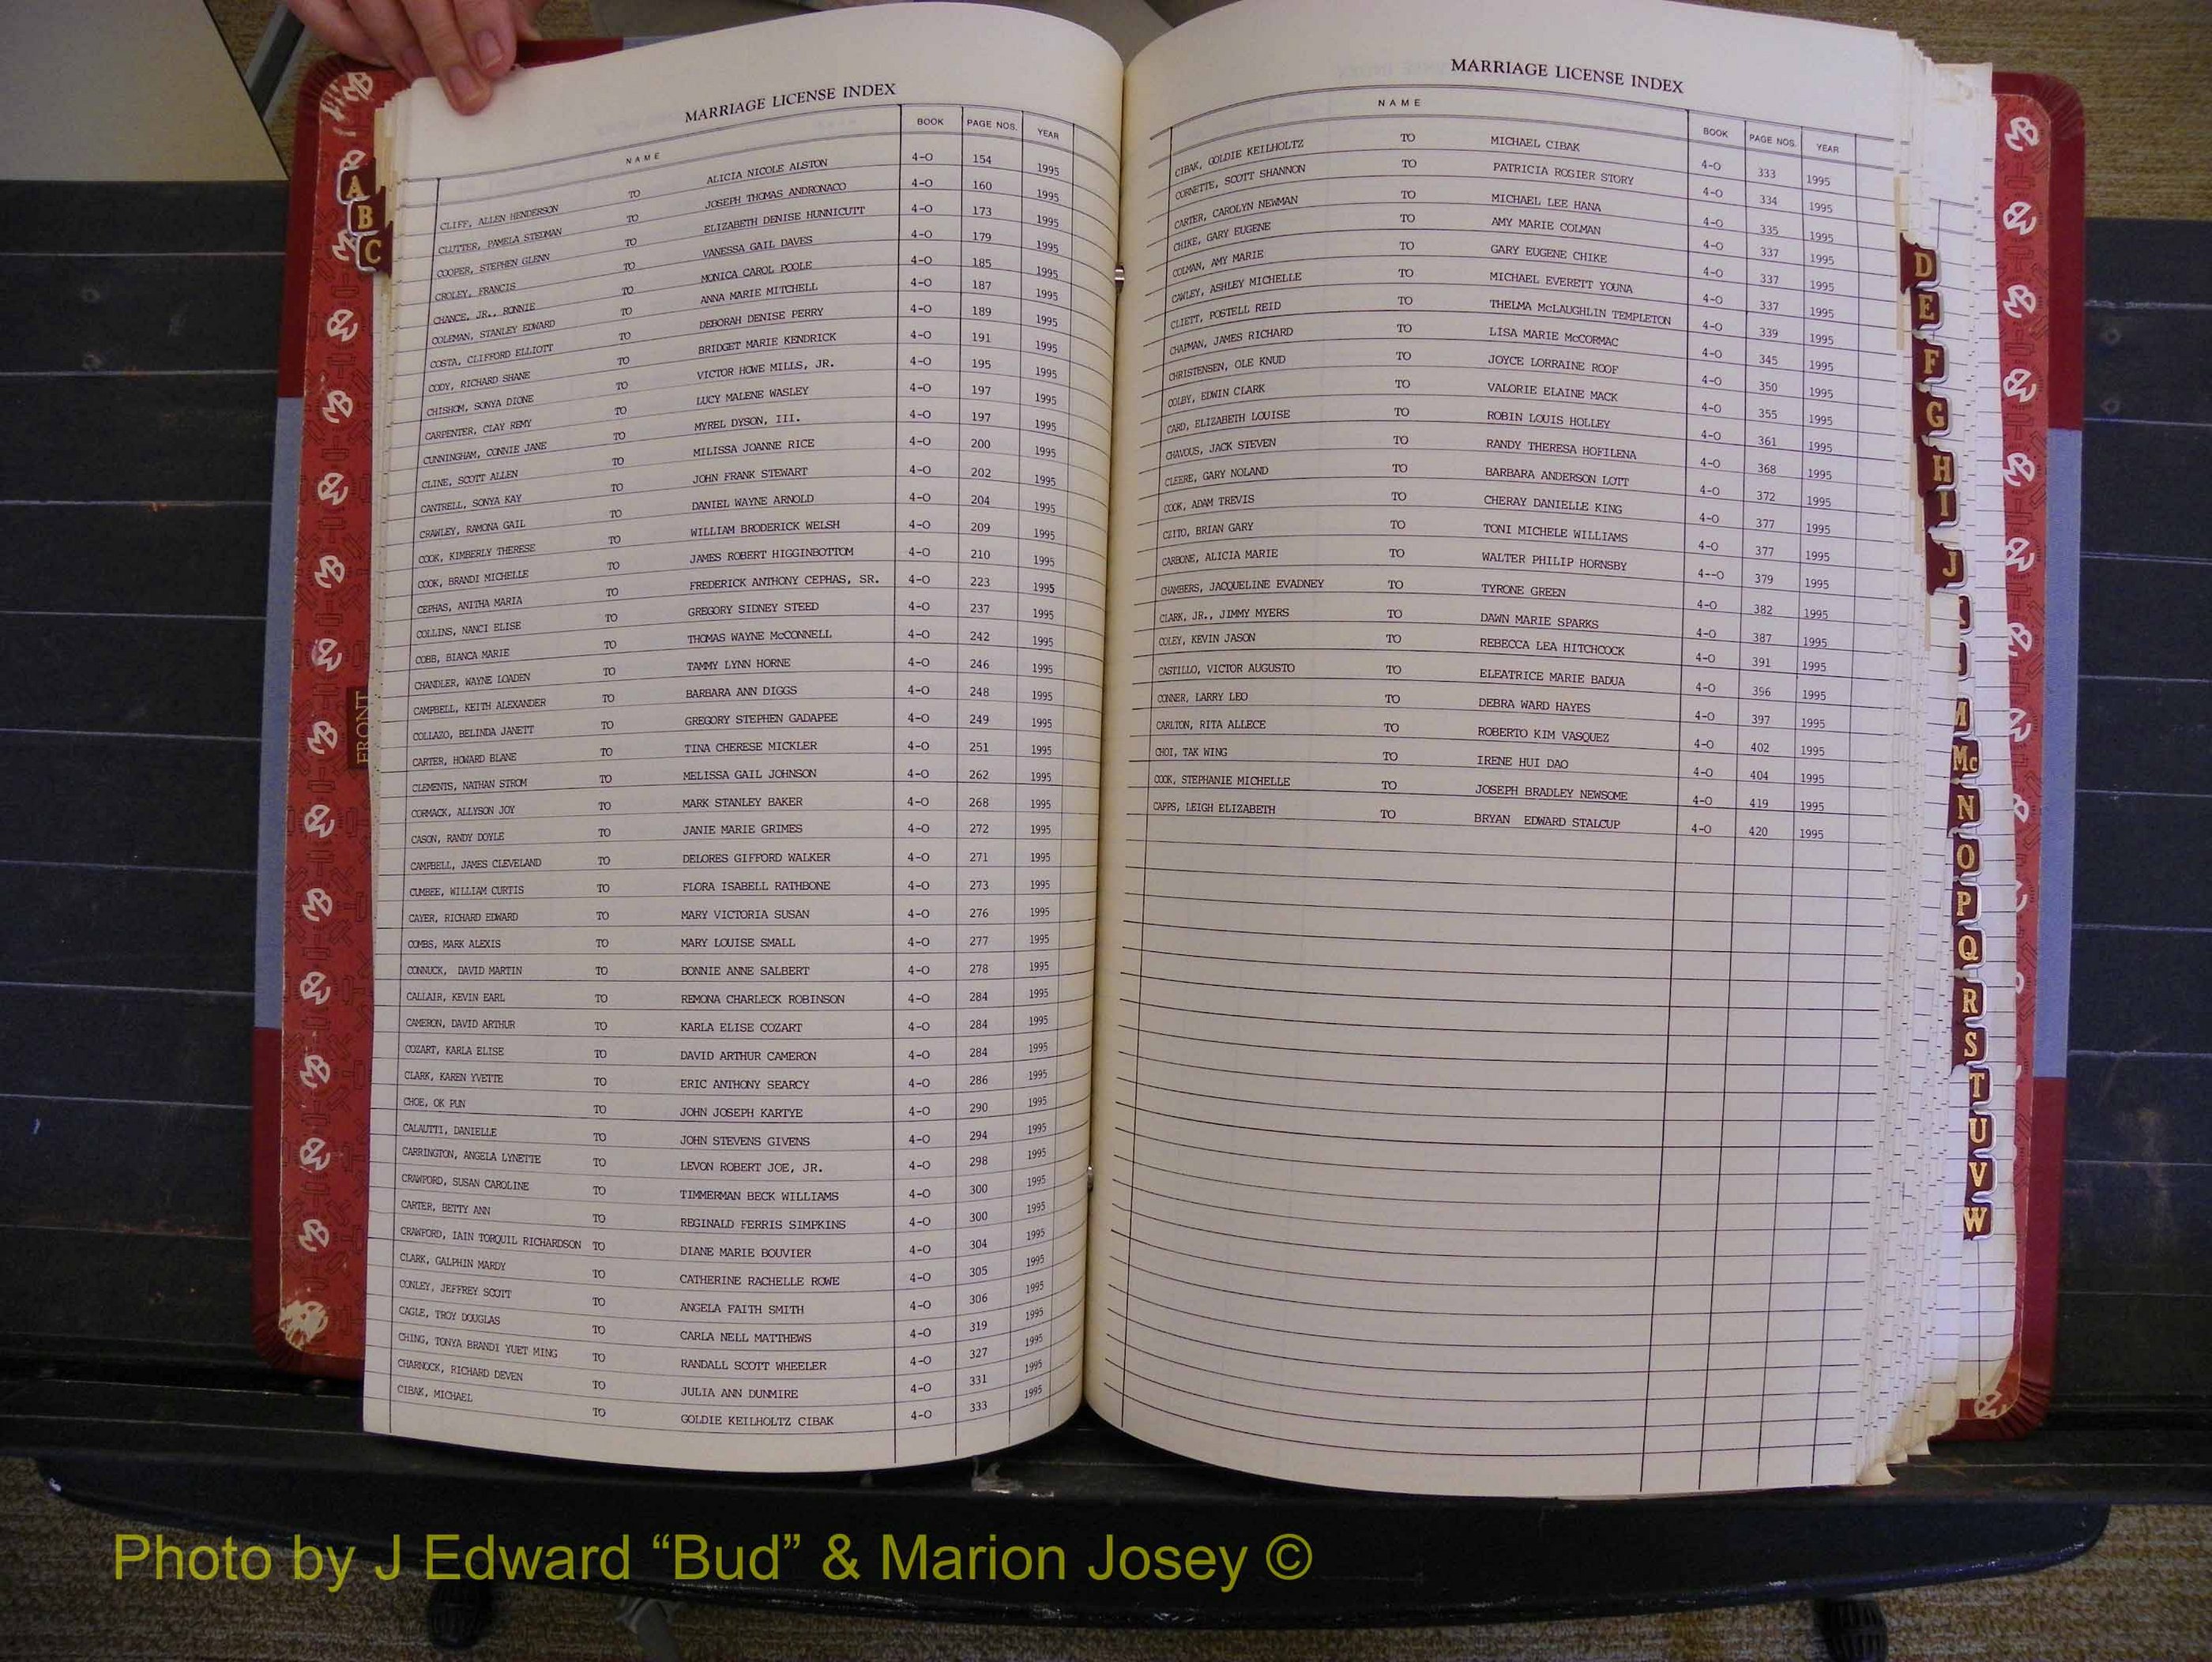 MARRIAGE LICENSE INDEX
NAME BOOK PAGE NOS. YEAR
CLIFF, ALLEN HENDERSON TO ALICIA NICOLE ALSTON 4-O 154 1995
CLUTTER, PAMELA STEDMAN TO JOSEPH THOMAS ANDRONACO 4-O 160 1995
COOPER, STEPHEN GLENN TO ELIZABETH DENISE HUNNICUTT 4-O 173 1995
CROLEY, FRANCIS TO VANESSA GAIL DAVES 4-O 179 1995
CHANCE, JR., RONNIE TO MONICA CAROL POOLE 4-O 185 1995
COLEMAN, STANLEY EDWARD TO ANNA MARIE MITCHELL 4-O 187 1995
COSTA, CLIFFORD ELLIOTT TO DEBORAH DENISE PERRY 4-O 189 1995
CODY, RICHARD SHANE TO BRIDGET MARIE KENDRICK 4-O 191 1995
CHISHOM, SONYA DIONE TO VICTOR HOWE MILLS, JR. 4-O 195 1995
CARPENTER, CLAY REMY TO LUCY MALENE WASLEY 4-O 197 1995
CUNNINGHAM, CONNIE JANE TO MYREL DYSON, III. 4-O 197 1995
CLINE, SCOTT ALLEN TO MILISSA JOANNE RICE 4-O 200 1995
CANTRELL, SONYA KAY TO JOHN FRANK STEWART 4-O 202 1995
CRAWLEY, RAMONA GAIL TO DANIEL WAYNE ARNOLD 4-O 204 1995
COOK, KIMBERLY THERESE TO WILLIAM BRODERICK WELSH 4-O 209 1995
COOK, BRANDI MICHELLE TO JAMES ROBERT HIGGINBOTTOM 4-O 210 1995
CEPHAS, ANITHA MARIA TO FREDERICK ANTHONY CEPHAS, SR. 4-O 223 1995
COLLINS, NANCI ELISE TO GREGORY SIDNEY STEED 4-O 237 1995
COBB, BIANCA MARIE TO THOMAS WAYNE McCONNELL 4-O 242 1995
CHANDLER, WAYNE LOADEN TO TAMMY LYNN HORNE 4-O 246 1995
CAMPBELL, KEITH ALEXANDER TO BARBARA ANN DIGGS 4-O 248 1995
COLLAZO, BELINDA JANETT TO GREGORY STEPHEN GADAPEE 4-O 249 1995
CARTER, HOWARD BLANE TO TINA CHERESE MICKLER 4-O 251 1995
CLEMENTS, NATHAN STROM TO MELISSA GAIL JOHNSON 4-O 262 1995
CORMACK, ALLYSON JOY TO MARK STANLEY BAKER 4-O 268 1995
CASON, RANDY DOYLE TO JANIE MARIE GRIMES 4-O 272 1995
CAMPBELL, JAMES CLEVELAND TO DELORES GIFFORD WALKER 4-O 271 1995
CUMBEE, WILLIAM CURTIS TO FLORA ISABELL RATHBONE 4-O 273 1995
CAYER, RICHARD EDWARD TO MARY VICTORIA SUSAN 4-O 276 1995
COMBS, MARK ALEXIS TO MARY LOUISE SMALL 4-O 277 1995
CONNUCK, DAVID MARTIN TO BONNIE ANNE SALBERT 4-O 278 1995
CALLAIR, KEVIN EARL TO REMONA CHARLECK ROBINSON 4-O 284 1995
CAMERON, DAVID ARTHUR TO KARLA ELISE COZART 4-O 284 1995
COZART, KARLA ELISE TO DAVID ARTHUR CAMERON 4-O 284 1995
CLARK, KAREN YVETTE TO ERIC ANTHONY SEARCY 4-O 286 1995
CHOE, OK PUN TO JOHN JOSEPH KARTYE 4-O 290 1995
CALAUTTI, DANIELLE TO JOHN STEVENS GIVENS 4-O 294 1995
CARRINGTON, ANGELA LYNETTE TO LEVON ROBERT JOE, JR. 4-O 298 1995
CRAWFORD, SUSAN CAROLINE TO TIMMERMAN BECK WILLIAMS 4-O 300 1995
CARTER, BETTY ANN TO REGINALD FERRIS SIMPKINS 4-O 300 1995
CRAWFORD, IAIN TORQUIL RICHARDSON TO DIANE MARIE BOUVIER 4-O 304 1995
CLARK, GALPHIN MARDY TO CATHERINE RACHELLE ROWE 4-O 305 1995
CONLEY, JEFFREY SCOTT TO ANGELA FAITH SMITH 4-O 306 1995
CAGLE, TROY DOUGLAS TO CARLA NELL MATTHEWS 4-O 319 1995
CHING, TONYA BRANDI YUET MING TO RANDALL SCOTT WHEELER 4-O 327 1995
CHARNOCK, RICHARD DEVEN TO JULIA ANN DUNMIRE 4-O 331 1995
CIBAK, MICHAEL TO GOLDIE KEILHOLTZ CIBAK 4-O 333 1995
MARRIAGE LICENSE INDEX
NAME BOOK PAGE NOS. YEAR
CIBAK, GOLDIE KEILHOLTZ TO MICHAEL CIBAK 4-O 333 1995
CORNETTE, SCOTT SHANNON TO PATRICIA ROSIER STORY 4-O 334 1995
CARTER, CAROLYN NEWMAN TO MICHAEL LEE HANA 4-O 335 1995
CHIKE, GARY EUGENE TO AMY MARIE COLMAN 4-O 337 1995
COLMAN, AMY MARIE TO GARY EUGENE CHIKE 4-O 337 1995
CAWLEY, ASHLEY MICHELLE TO MICHAEL EVERETT YOUNA 4-O 337 1995
CLIETT, POSTELL REID TO THELMA McLAUGHLIN TEMPLETON 4-O 339 1995
CHAPMAN, JAMES RICHARD TO LISA MARIE McCORMAC 4-O 345 1995
CHRISTENSEN, OLE KNUD TO JOYCE LORRAINE ROOF 4-O 350 1995
COLBY, EDWIN CLARK TO VALORIE ELAINE MACK 4-O 355 1995
CARD, ELIZABETH LOUISE TO ROBIN LOUIS HOLLEY 4-O 361 1995
CHAVOUS, JACK STEVEN TO RANDY THERESA HOFILENA 4-O 368 1995
CLEERE, GARY NOLAND TO BARBARA ANDERSON LOTT 4-O 372 1995
COOK, ADAM TREVIS TO CHERAY DANIELLE KING 4-O 377 1995
CZITO, BRIAN GARY TO TONI MICHELE WILLIAMS 4-O 377 1995
CARBONE, ALICIA MARIE TO WALTER PHILIP HORNSBY 4--O 379 1995
CHAMBERS, JACQUELINE EVADNEY TO TYRONE GREEN 4-O 382 1995
CLARK, JR., JIMMY MYERS TO DAWN MARIE SPARKS 4-O 387 1995
COLEY, KEVIN JASON TO REBECCA LEA HITCHCOCK 4-O 391 1995
CASTILLO, VICTOR AUGUSTO TO ELEATRICE MARIE BADUA 4-O 396 1995
CONNER, LARRY LEO TO DEBRA WARD HAYES 4-O 397 1995
CARLTON, RITA ALLECE TO ROBERTO KIM VASQUEZ 4-O 402 1995
CHOI, TAK WING TO IRENE HUI DAO 4-O 404 1995
COOK, STEPHANIE MICHELLE TO JOSEPH BRADLEY NEWSOME 4-O 419 1995
CAPPS, LEIGH ELIZABETH TO BRYAN EDWARD STALCUP 4-O 420 1995
A
B
C
FRONT
D
E
F
G
H
I
J
M
Mc
N
O
P
Q
R
S
T
U
V
W
Photo by J Edward “Bud” & Marion Josey ©